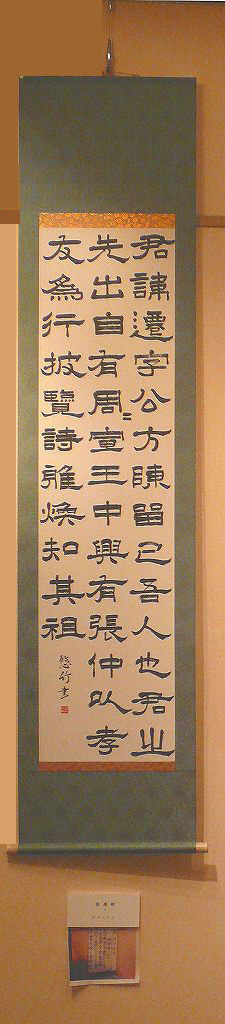 君諱遷字公方陳留已吾人也君之
先出自有周〻宣王中興有張仲以孝
友為行披覽詩雅煥知其祖
悠竹書